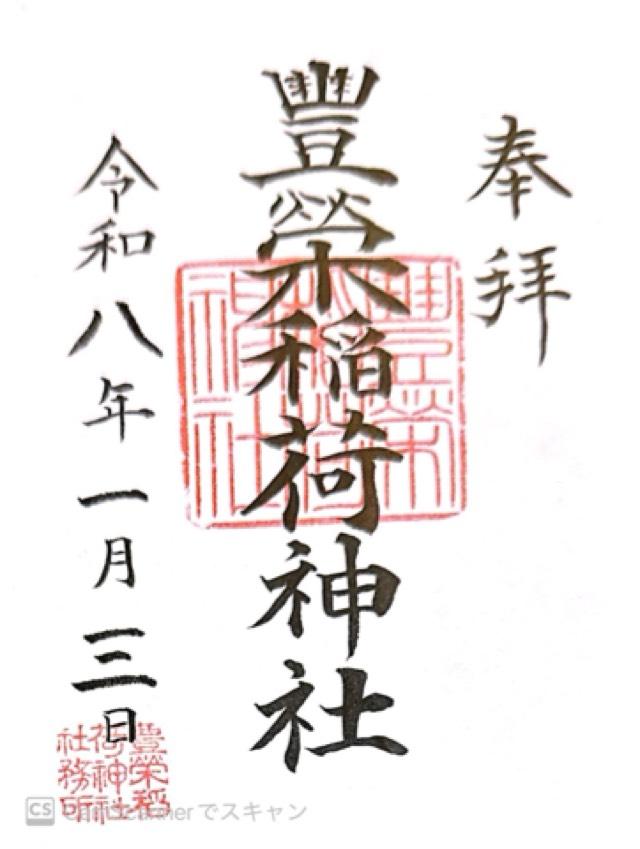 奉拝
豊榮稲荷神社
令和八年一月三日
豊榮稲荷神社
豊榮稲
荷神社
社務所
CS CamScannerでスキャン